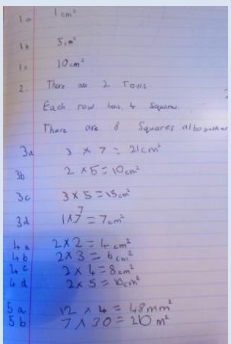 1a 1cm²
1b 5cm²
1c 10cm²
2. There are 2 rows
Each row has 4 squares
There are 8 squares altogether
3a 3 x 7 = 21cm²
3b 2 x 5 = 10cm²
3c 3 x 5 = 15cm²
3d 1x7 = 7cm²
4a 2x2 = 4cm²
4b 2x3 = 6cm²
4c 2x4 = 8cm²
4d 2x5 = 10cm²
5a 12 x 4 = 48mm²
5b 7 x 30 = 210 m²